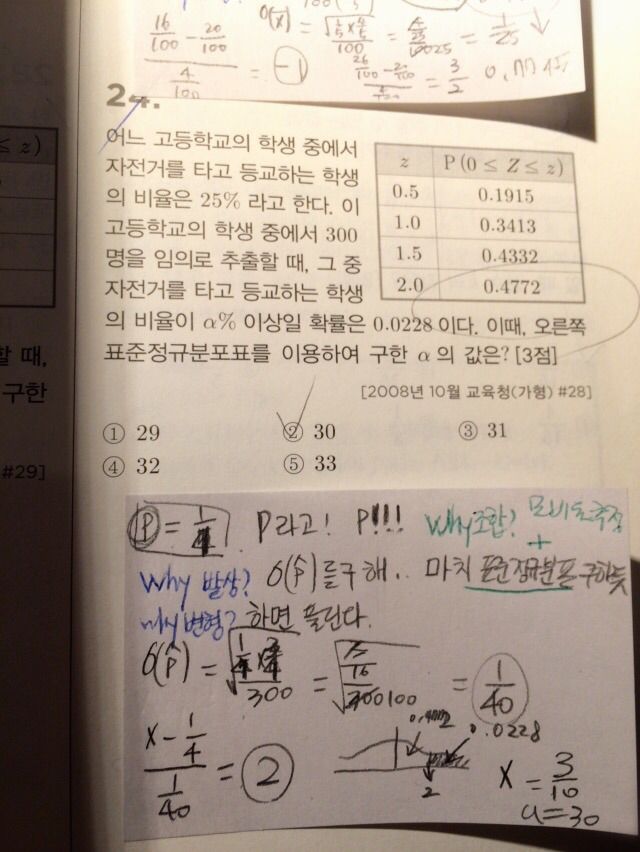 16/100 - 20/100
4/100
= -1
= 1/25
= 3/2
24.
어느 고등학교의 학생 중에서
자전거를 타고 등교하는 학생
의 비율은 25% 라고 한다. 이
고등학교의 학생 중에서 300
명을 임의로 추출할 때, 그 중
자전거를 타고 등교하는 학생
의 비율이 α% 이상일 확률은 0.0228 이다. 이때, 오른쪽
표준정규분포표를 이용하여 구한 α 의 값은? [3점]
z P(0 ≤ Z ≤ z)
0.5 0.1915
1.0 0.3413
1.5 0.4332
2.0 0.4772
[2008년 10월 교육청(가형) #28]
① 29 ② 30 ③ 31
④ 32 ⑤ 33
≤ z)
할 때,
구한
#29]
P = 1/4 P라고! P!!! Why조합?
+
Why 발상? σ(p̂)를구해.. 마치 표준정규분포 구하듯
why변형? 하면 풀린다.
σ(p̂) = = = 1/40
300 100
x - 1/4
1/40
= 2
0.0228
2
x = 3/10
a = 30